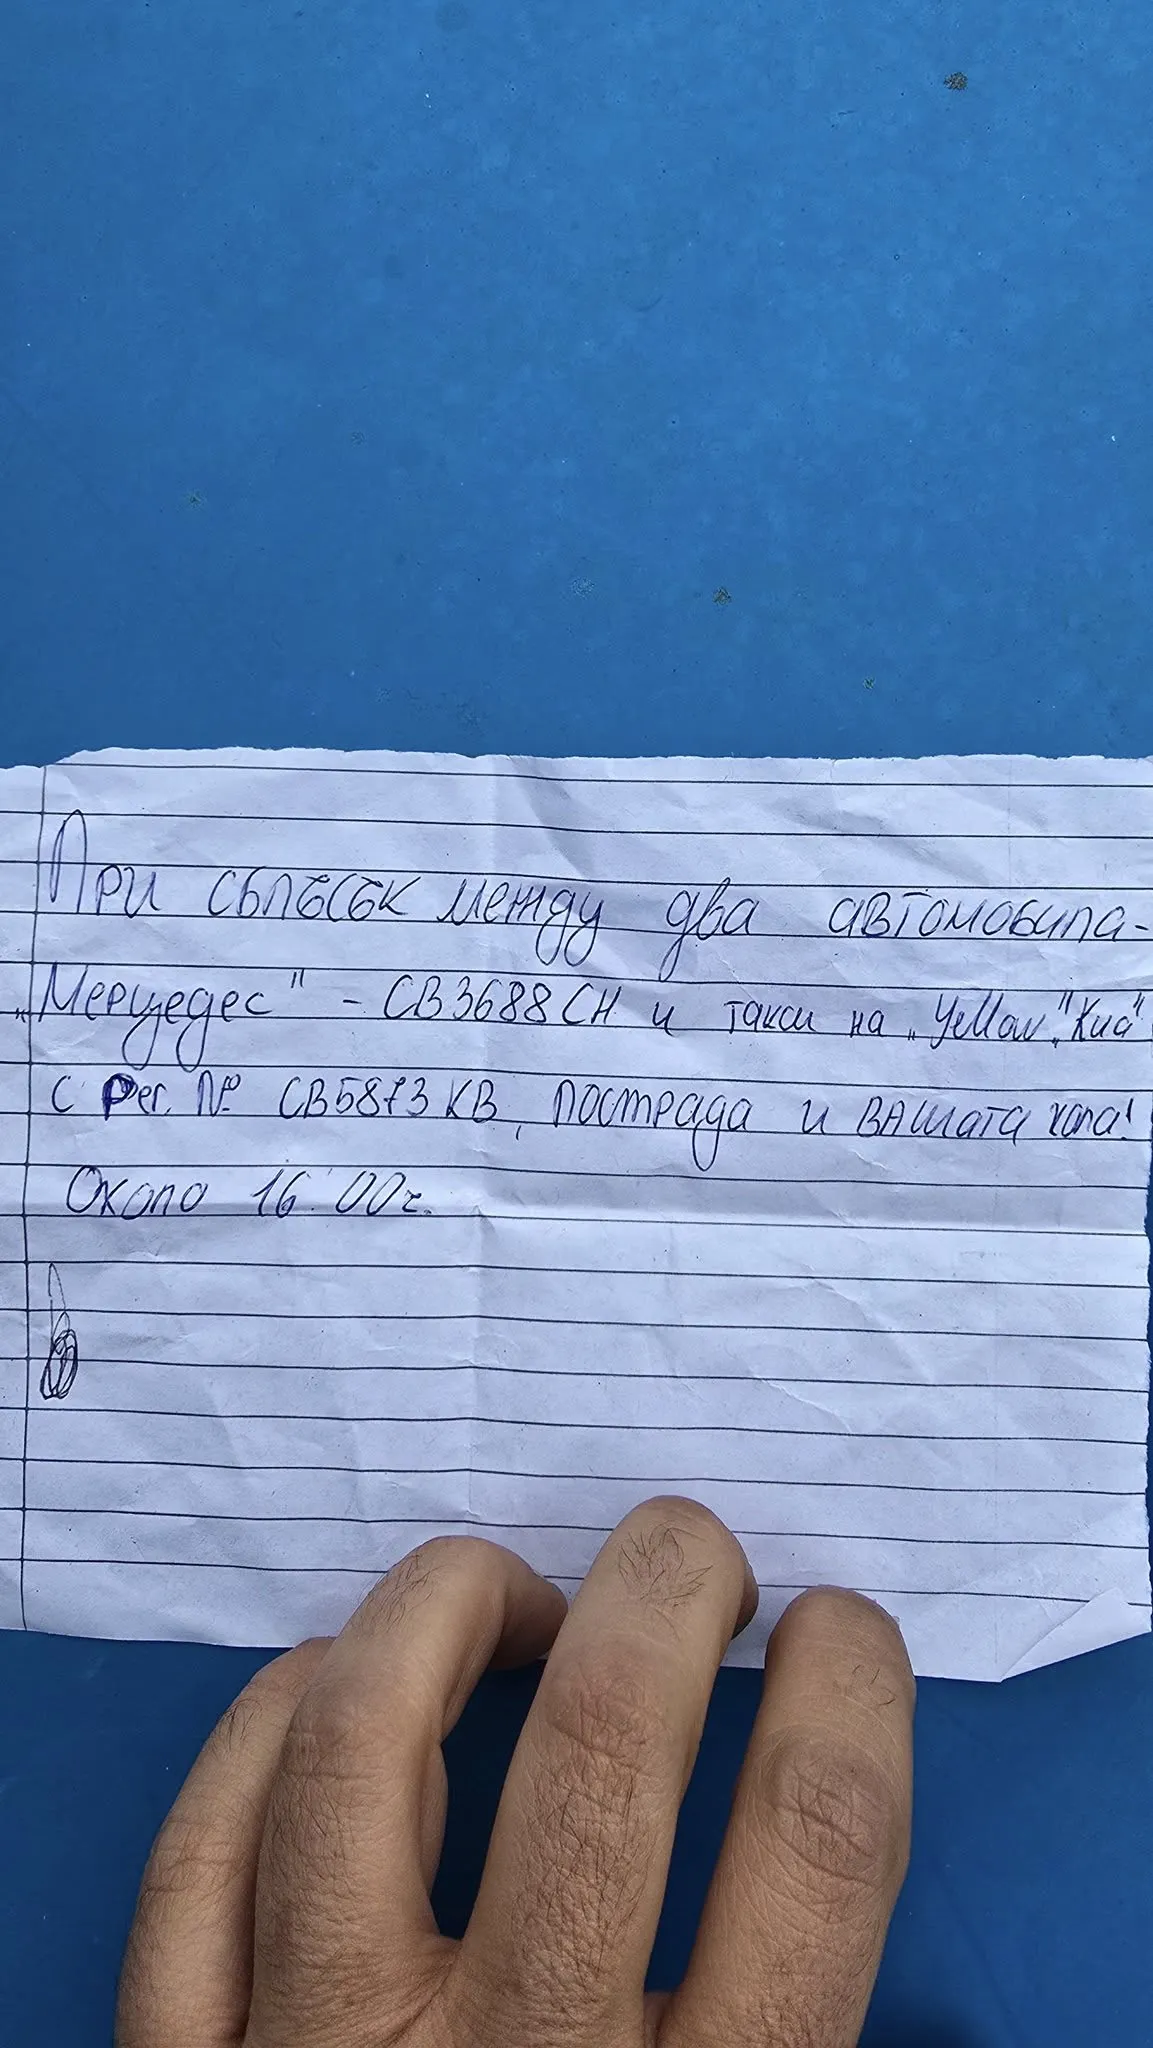 При сблъсък между два автомобила -
„Мерцедес" - СВ3688СН и такси на „Yellow" „Киа"
с рег. № СВ5873КВ, пострада и вашата кола!
Около 16:00г.